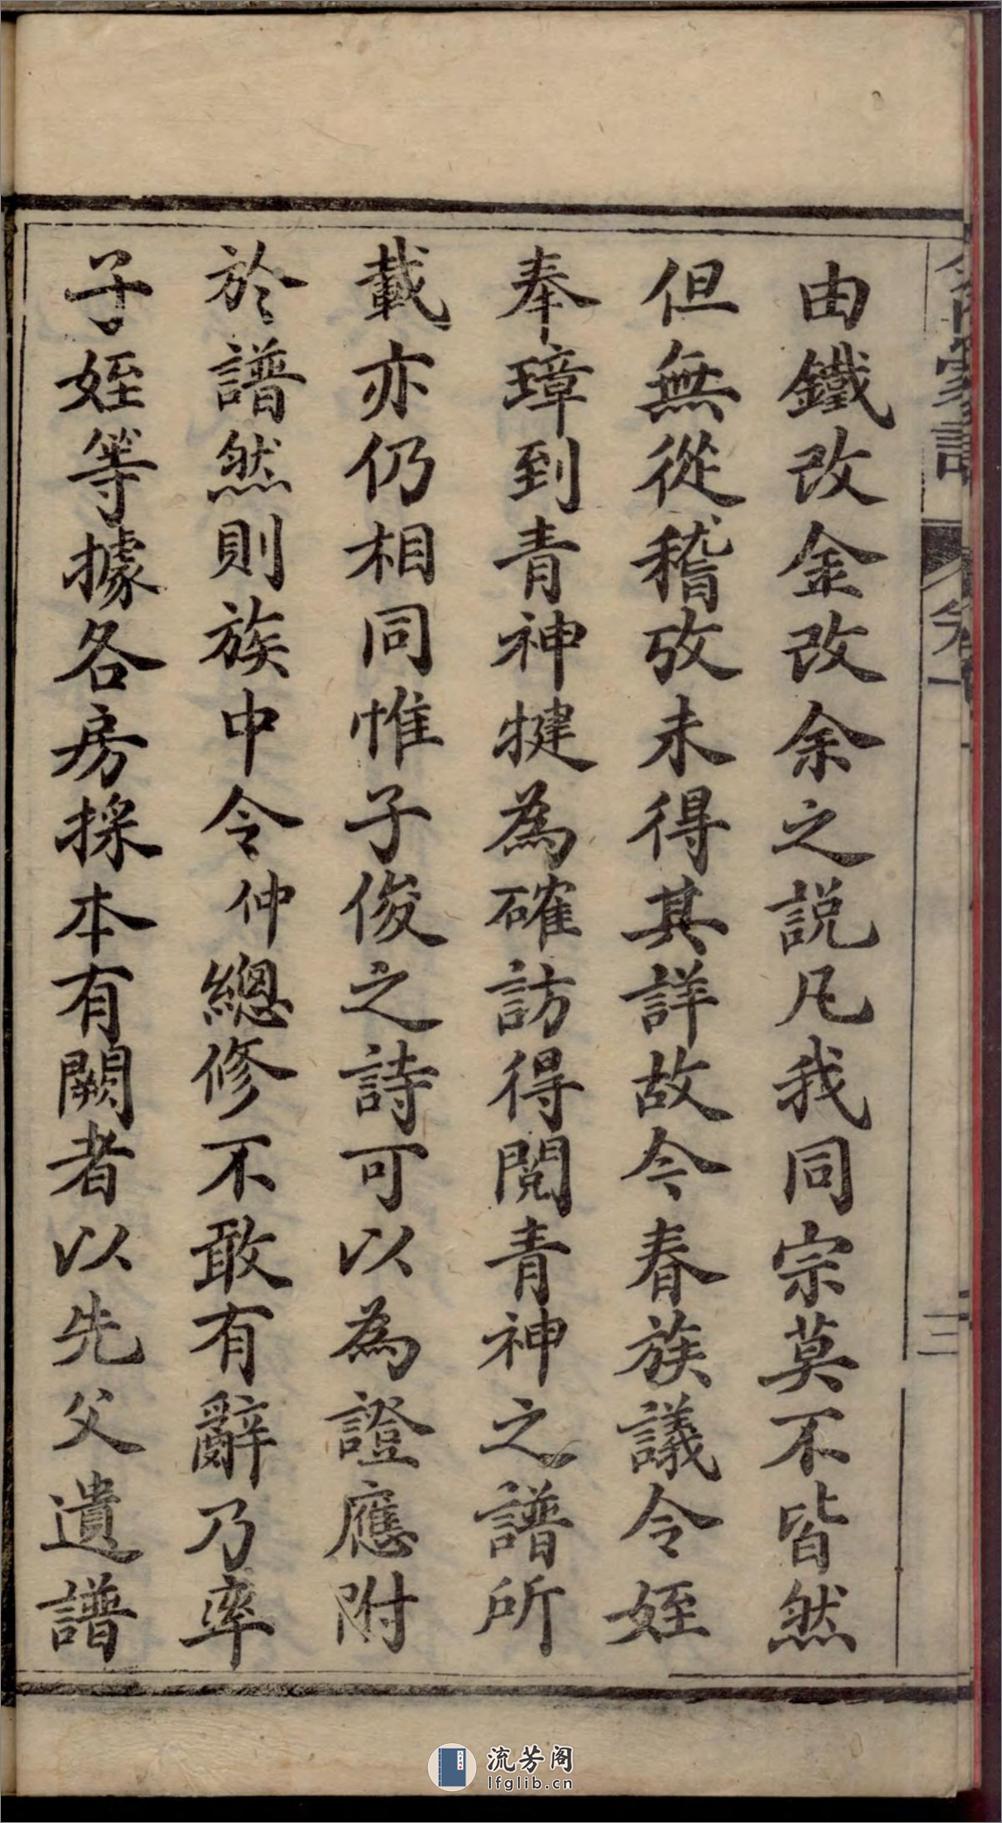 由鐵改金改余之説凡我同宗莫不皆然
但無從稽攷未得其詳故今春族議令姪
奉璋到青神犍為確訪得閱青神之譜所
載亦仍相同惟子俊之詩可以為證應附
於譜然則族中令仲總修不敢有辭乃率
子姪等據各房採本有闕者以先父遺譜
卷一
三
流芳阁
lfglib.cn